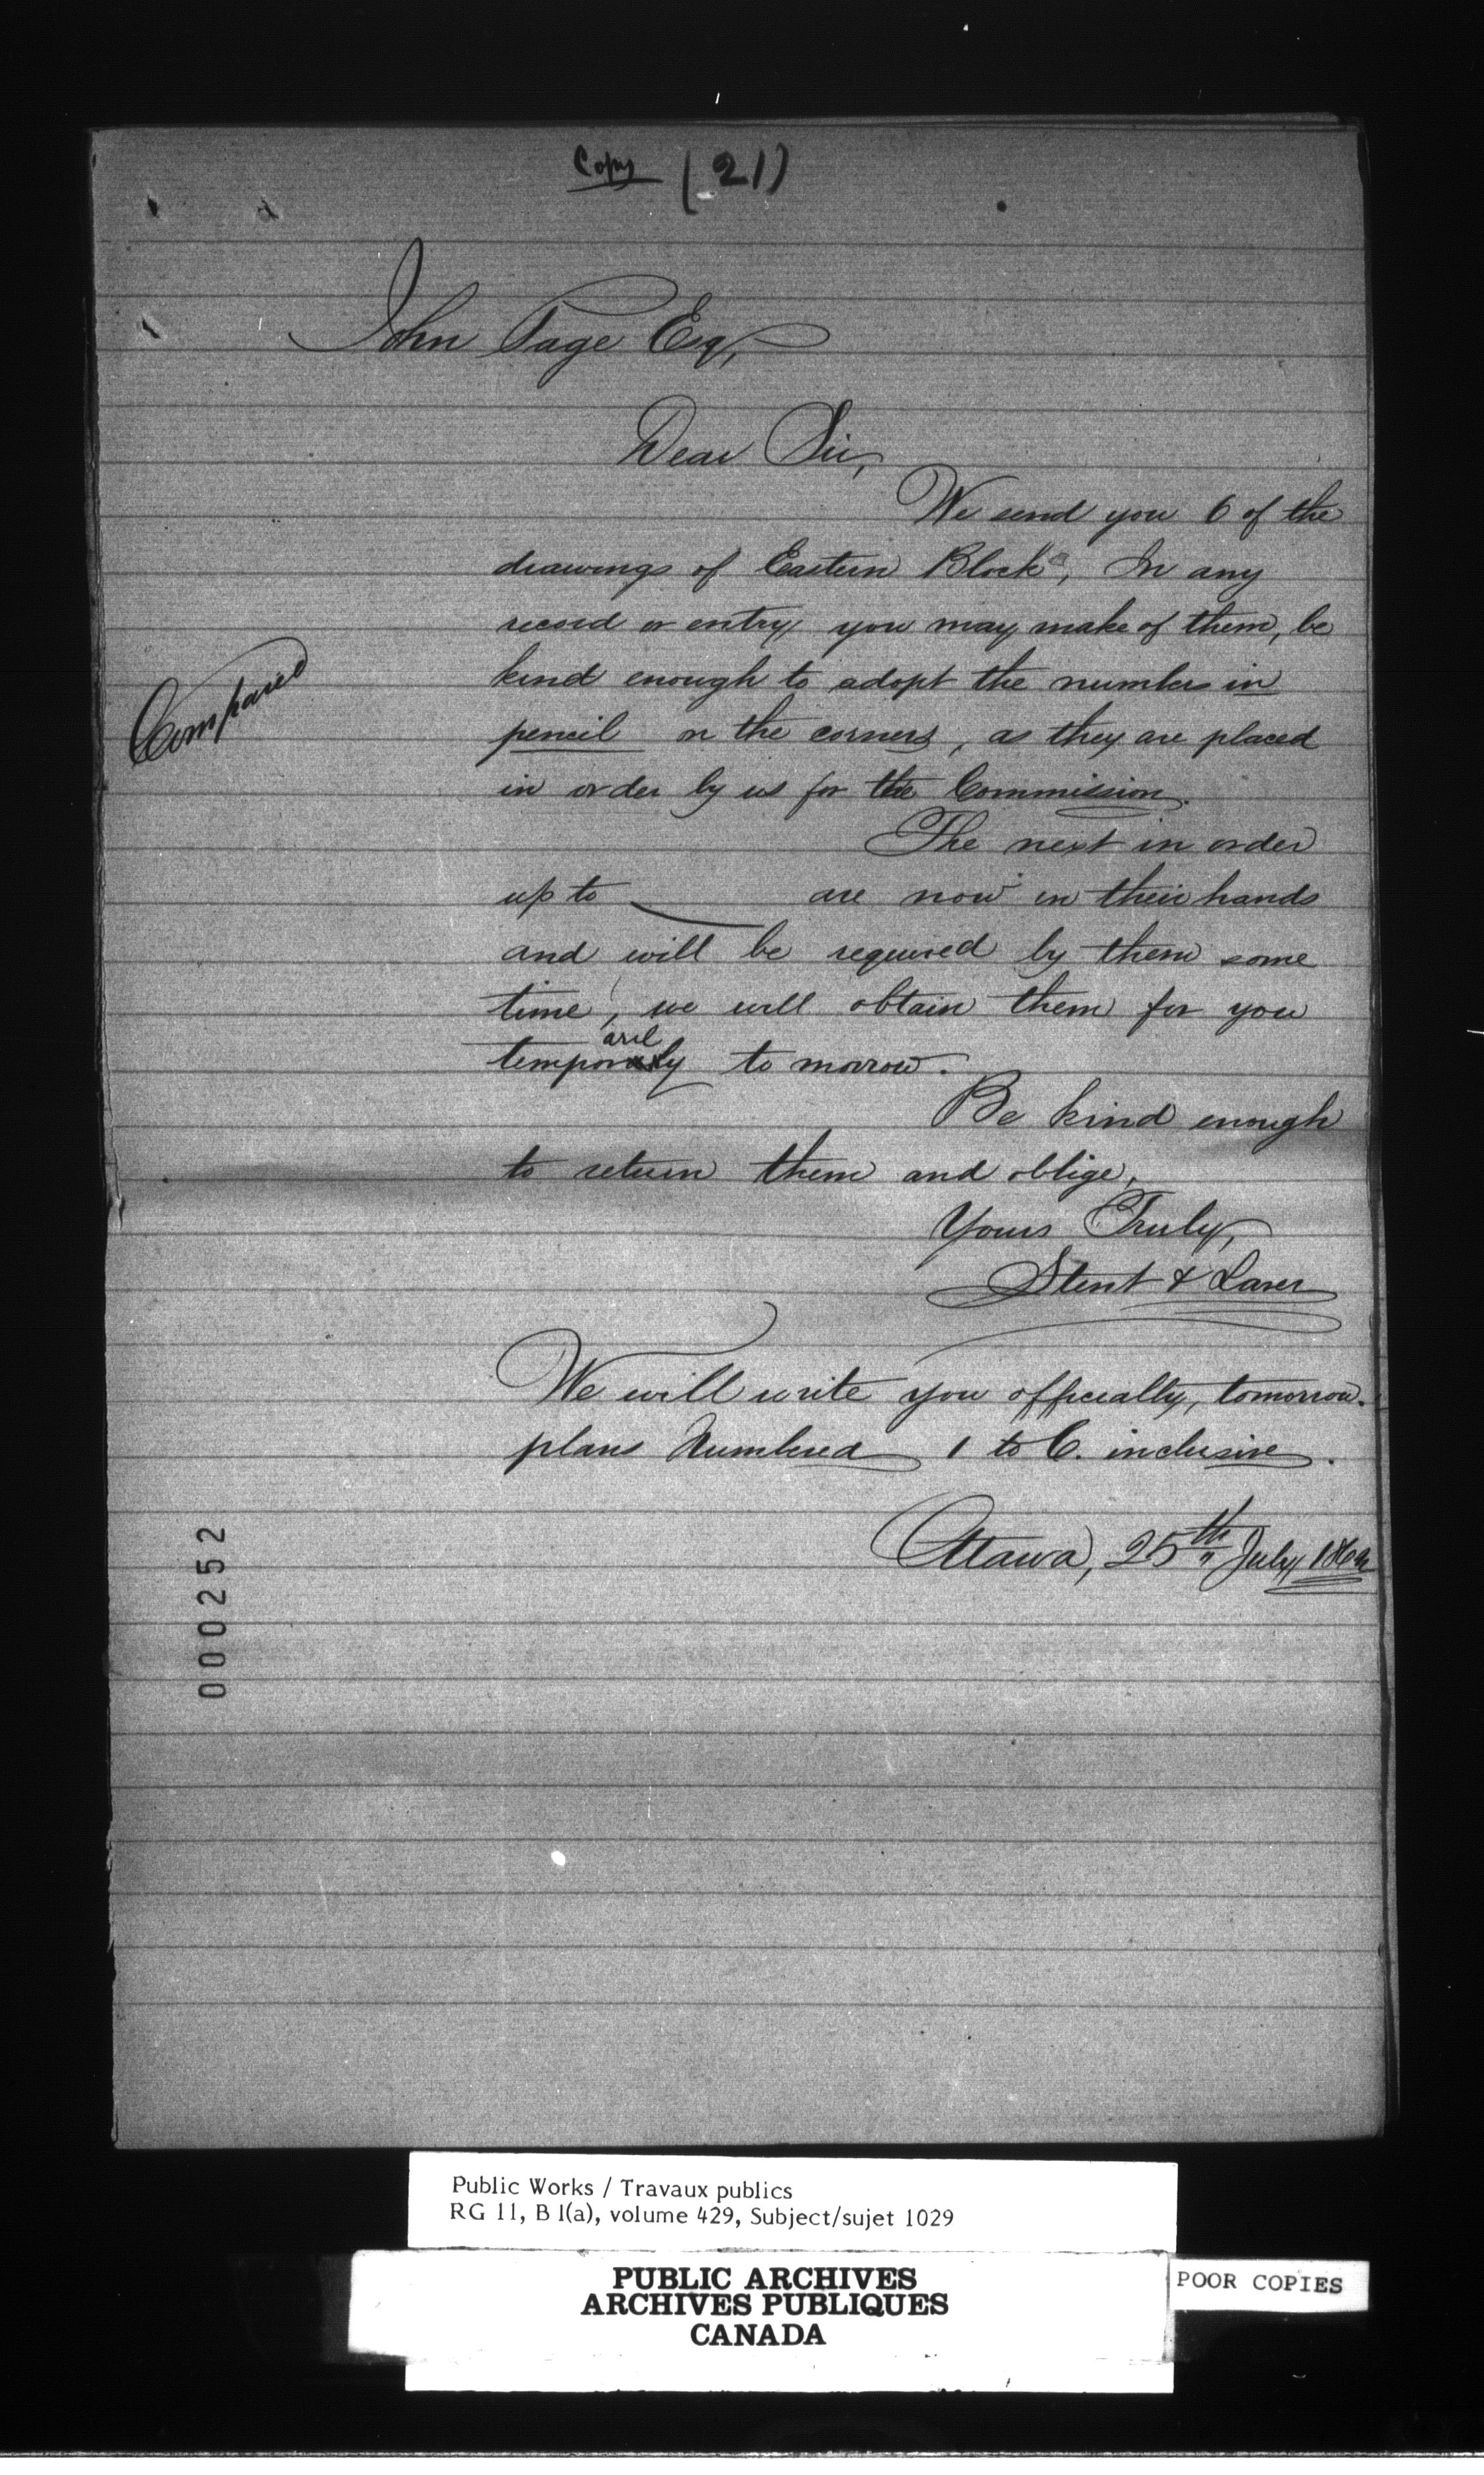 Copy (21)
John Page Esq,
Dear Sir,
We send you 6 of the
drawings of Eastern Block, In any
record or entry you may make of them, be
kind enough to adopt the numbers in
pencil on the corners, as they are placed
in order by us for the Commission.
Compared
The next in order
up to ____ are now in their hands
and will be required by them some
time, we will obtain them for you
temporarily to morrow.
Be kind enough
to return them and oblige,
Yours Truly,
Stent & Laver
We will write you officially, tomorrow.
plans Numbered 1 to 6. inclusive.
Ottawa, 25th July,
000252
Public Works / Travaux publics
RG 11, B 1(a), volume 429, Subject/sujet 1029
PUBLIC ARCHIVES
ARCHIVES PUBLIQUES
CANADA
POOR COPIES